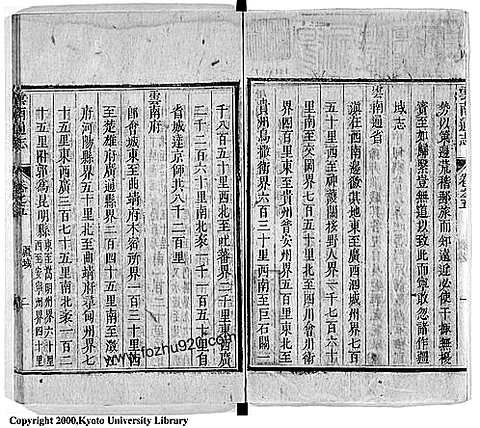 雲南通志 卷之五
賓至如歸繫豈無道以致此而寧敢忽諸作疆
域志
雲南通省
滇在西南邊徼其地東至廣西泗城州界七百
五十里西至神護關接野人界一千七百六十
里南至交岡界七百五十里北至四川會川衛
界四百里東南至貴州普安州界五百里東北至
貴州烏撒衛界六百三十里西南至巨石關二
千八百五十里西北至吐蕃界二千里東西廣
二千二百六十里南北袤一千一百五十里自
省城達京師共八千二百里
雲南府
卽會城東至曲靖府木密所界一百三十里西
至楚雄府廣通縣界二百四十五里南至澂江
府河陽縣界五十里北至曲靖府尋甸州界七
十五里東西廣三百七十五里南北袤一百二
十五里附郭爲昆明縣東至嵩明州界六十里
西至安寧州界四十里
雲南通志 卷之五 疆域 二
www.fozhu920.com
Copyright 2000,Kyoto University Library